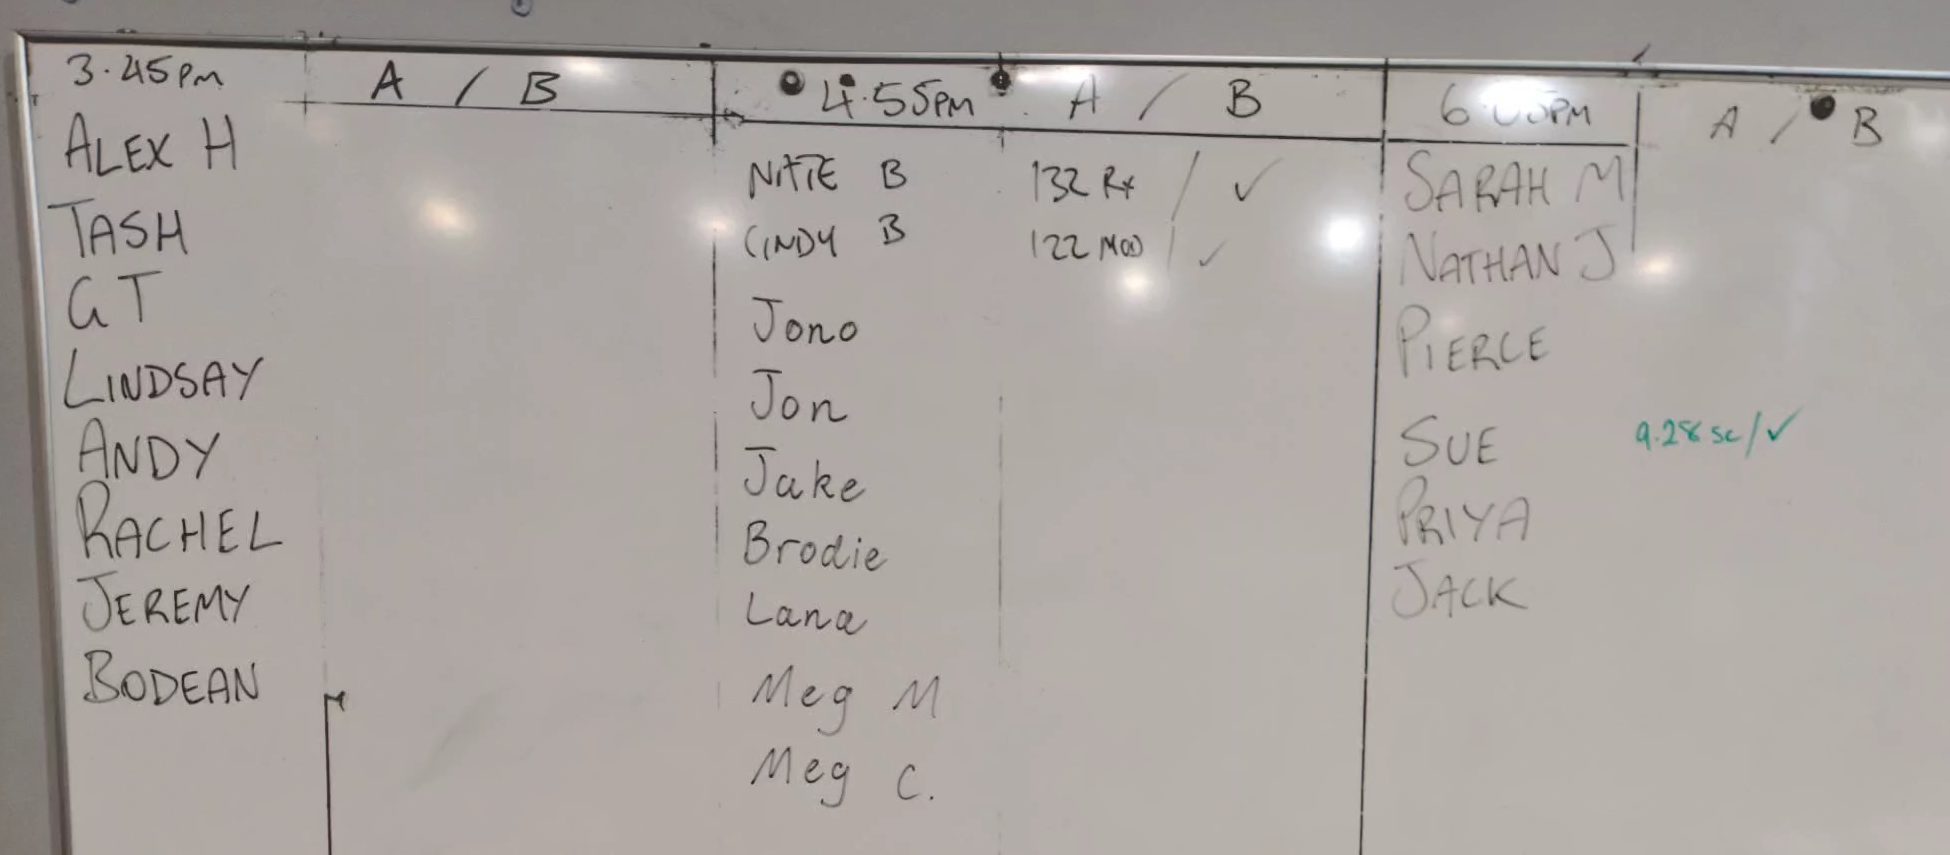 3.45pm A / B
ALEX H
TASH
GT
LINDSAY
ANDY
RACHEL
JEREMY
BODEAN
4.55pm A / B
NATE B 132 Rx / ✓
CINDY B 122 MOD / ✓
Jono
Jon
Jake
Brodie
Lana
Meg M
Meg C.
PM A / B
SARAH M
NATHAN J
PIERCE
SUE 9.28 sc/✓
PRIYA
JACK